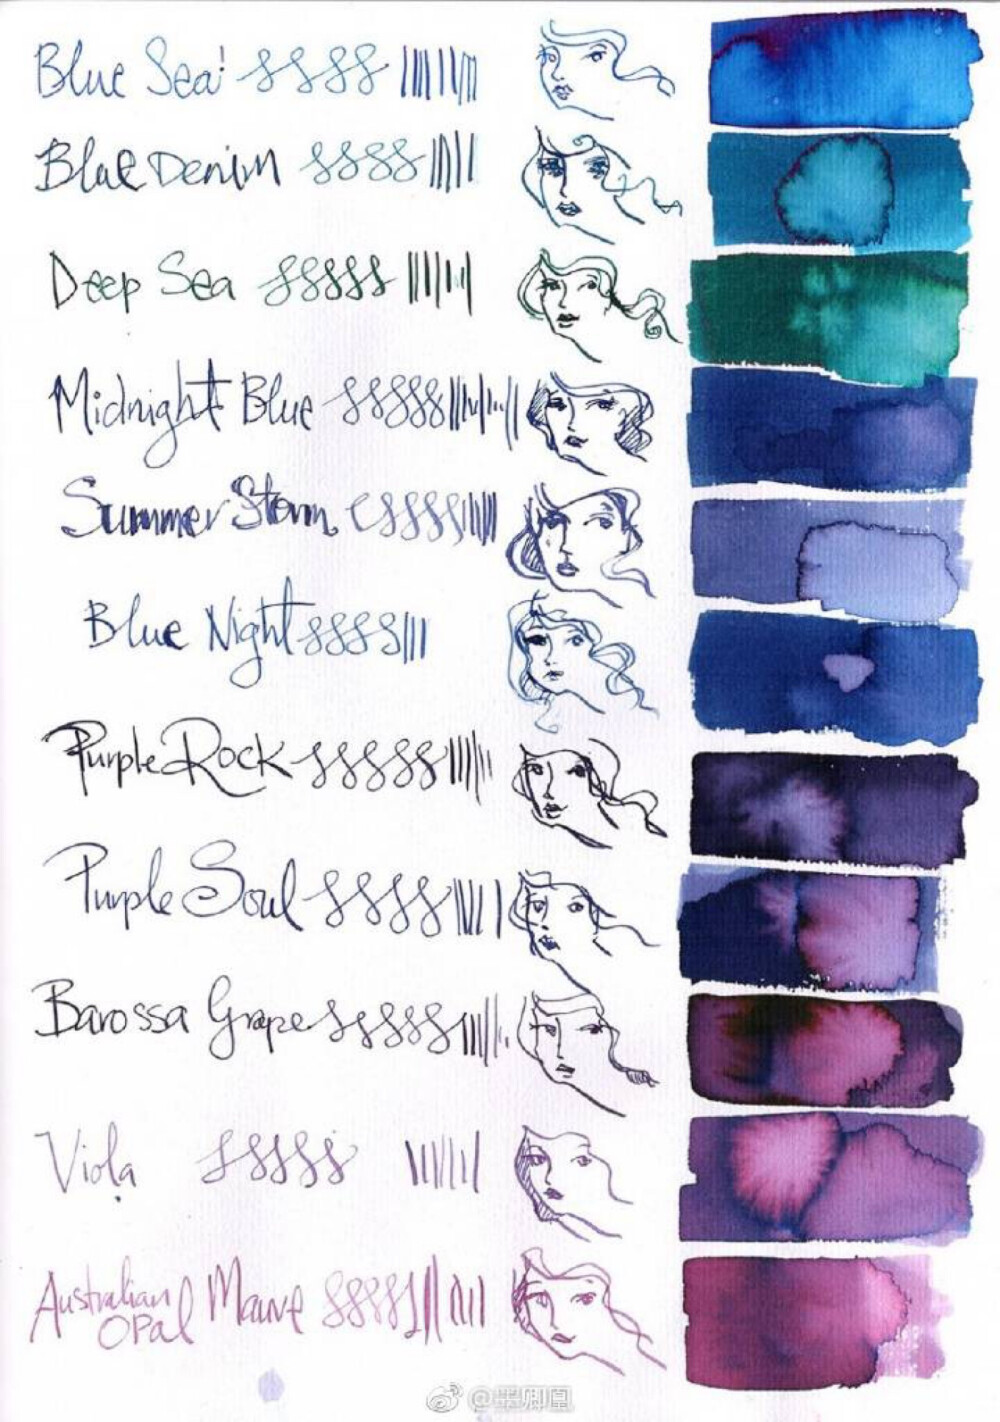 Blue Sea
Blue Denim
Deep Sea
Midnight Blue
Summer Storm
Blue Night
Purple Rock
Purple Soul
Barossa Grape
Viola
Australian
Opal Mauve
@墨卿凰